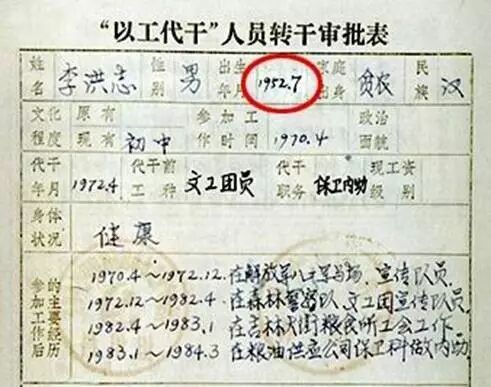 “以工代干”人员转干审批表
姓名 李洪志 性别 男 出生年月 1952.7 家庭出身 贫农 民族 汉
文化程度 原有 现有 初中 参加工作时间 1970.4 政治面貌
代干年月 1972.4 代干前工种 文工团员 代干职务 保卫内勤 现工资级别
身体状况 健康
参加工作后的主要经历
1970.4～1972.12.在解放军八一军马场,宣传队员.
1972.12～1982.4 在森林警察队文工团宣传队员.
1982.4～1983.1 在吉林大街粮食所工会工作.
1983.1～1984.3 在粮油供应公司保卫科做内勤.